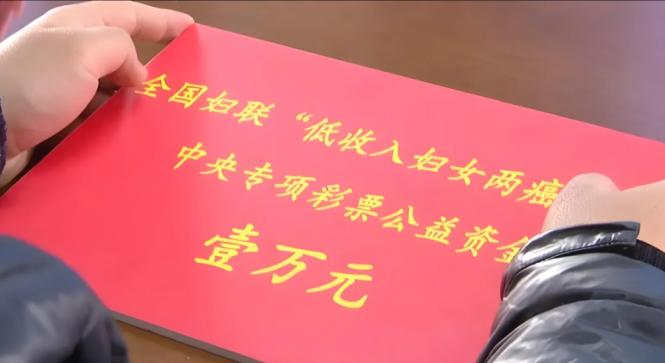 全国妇联“低收入妇女两癌
中央专项彩票公益资金
壹万元